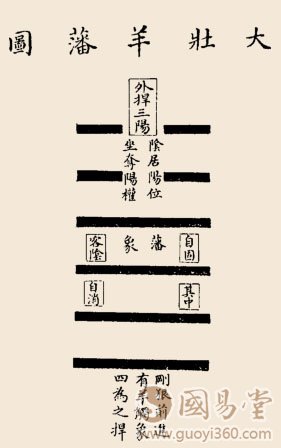 大壯羊藩圖
外捍三陽
陰居陽位
坐奪陽權
自
藩象
客陰
其中
自消
剛狠前進
有羊觸象
四為之捍
國易堂
www.guoyi360.com